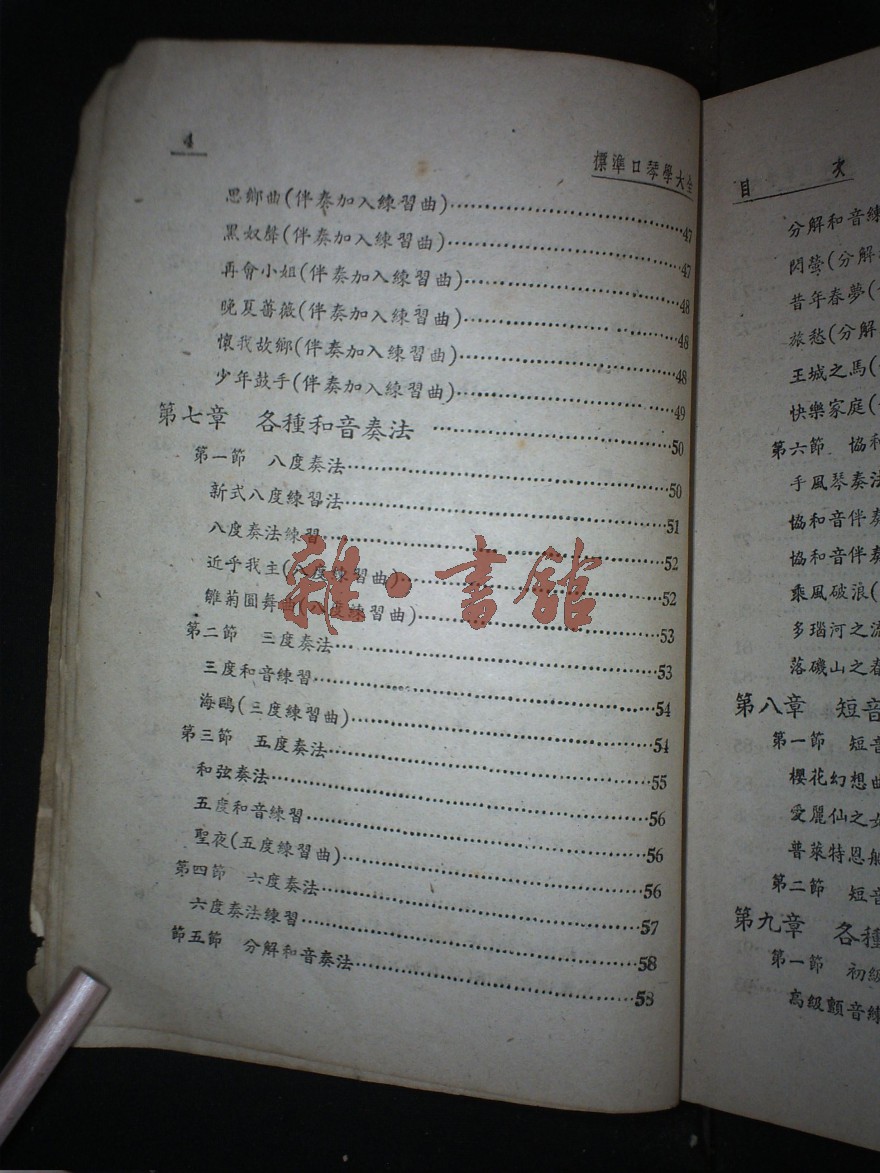 4
標準口琴學大全
思鄉曲(伴奏加入練習曲)……47
黑奴聲(伴奏加入練習曲)……47
再會小姐(伴奏加入練習曲)……48
晚夏薔薇(伴奏加入練習曲)……48
懷我故鄉(伴奏加入練習曲)……48
少年鼓手(伴奏加入練習曲)……49
第七章 各種和音奏法……50
第一節 八度奏法……50
新式八度練習法……51
八度奏法練習……52
近乎我主(八度練習曲)……52
雛菊圓舞曲(八度練習曲)……53
第二節 三度奏法……53
三度和音練習……54
海鷗(三度練習曲)……54
第三節 五度奏法……55
和弦奏法……56
五度和音練習……56
聖夜(五度練習曲)……56
第四節 六度奏法……57
六度奏法練習……58
節五節 分解和音奏法……58
雜·書館
目 次
分解和音練
閃螢(分解
昔年春夢(
旅愁(分解
王城之馬(
快樂家庭(
第六節 協和
手風琴奏法
協和音伴奏
協和音伴奏
乘風破浪(
多瑙河之流
落磯山之春
第八章 短音
第一節 短音
櫻花幻想曲
愛麗仙之女
普萊特恩船
第二節 短音
第九章 各種
第一節 初級
高級顫音練